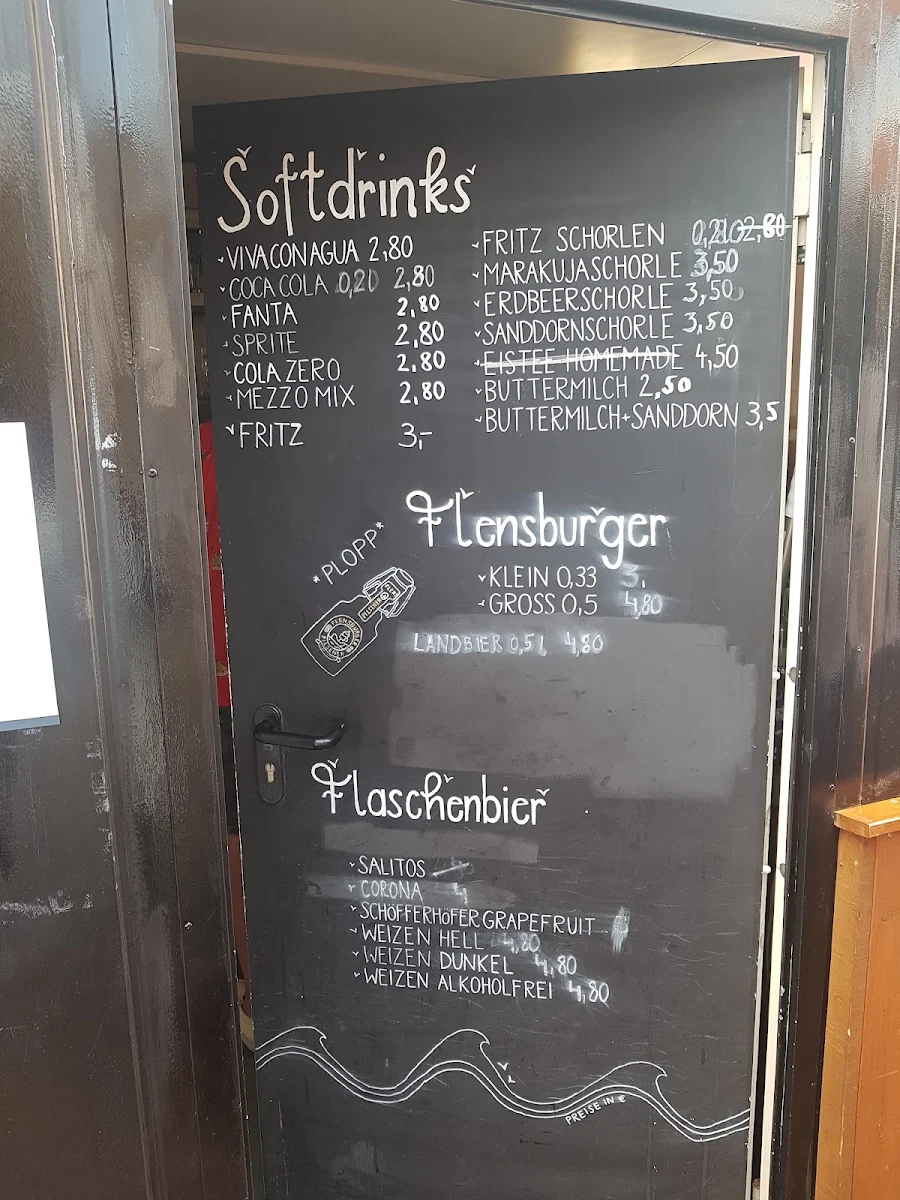 Softdrinks
VIVA CON AGUA 2,80
COCA COLA 0,20 2,80
FANTA 2,80
SPRITE 2,80
COLA ZERO 2,80
MEZZO MIX 2,80
FRITZ 3,-
FRITZ SCHORLEN 2,80
MARAKUJASCHORLE 3,50
ERDBEERSCHORLE 3,50
SANDDORNSCHORLE 3,50
EISTEE HOMEMADE 4,50
BUTTERMILCH 2,50
BUTTERMILCH+SANDDORN 3,5
Flensburger
*PLOPP*
KLEIN 0,33 3,
GROSS 0,5 4,80
LANDBIER 0,5 l 4,80
Flaschenbier
SALITOS
CORONA 4,
SCHÖFFERHÖFER GRAPEFRUIT
WEIZEN HELL 4,80
WEIZEN DUNKEL 4,80
WEIZEN ALKOHOLFREI 4,80
PREISE IN €